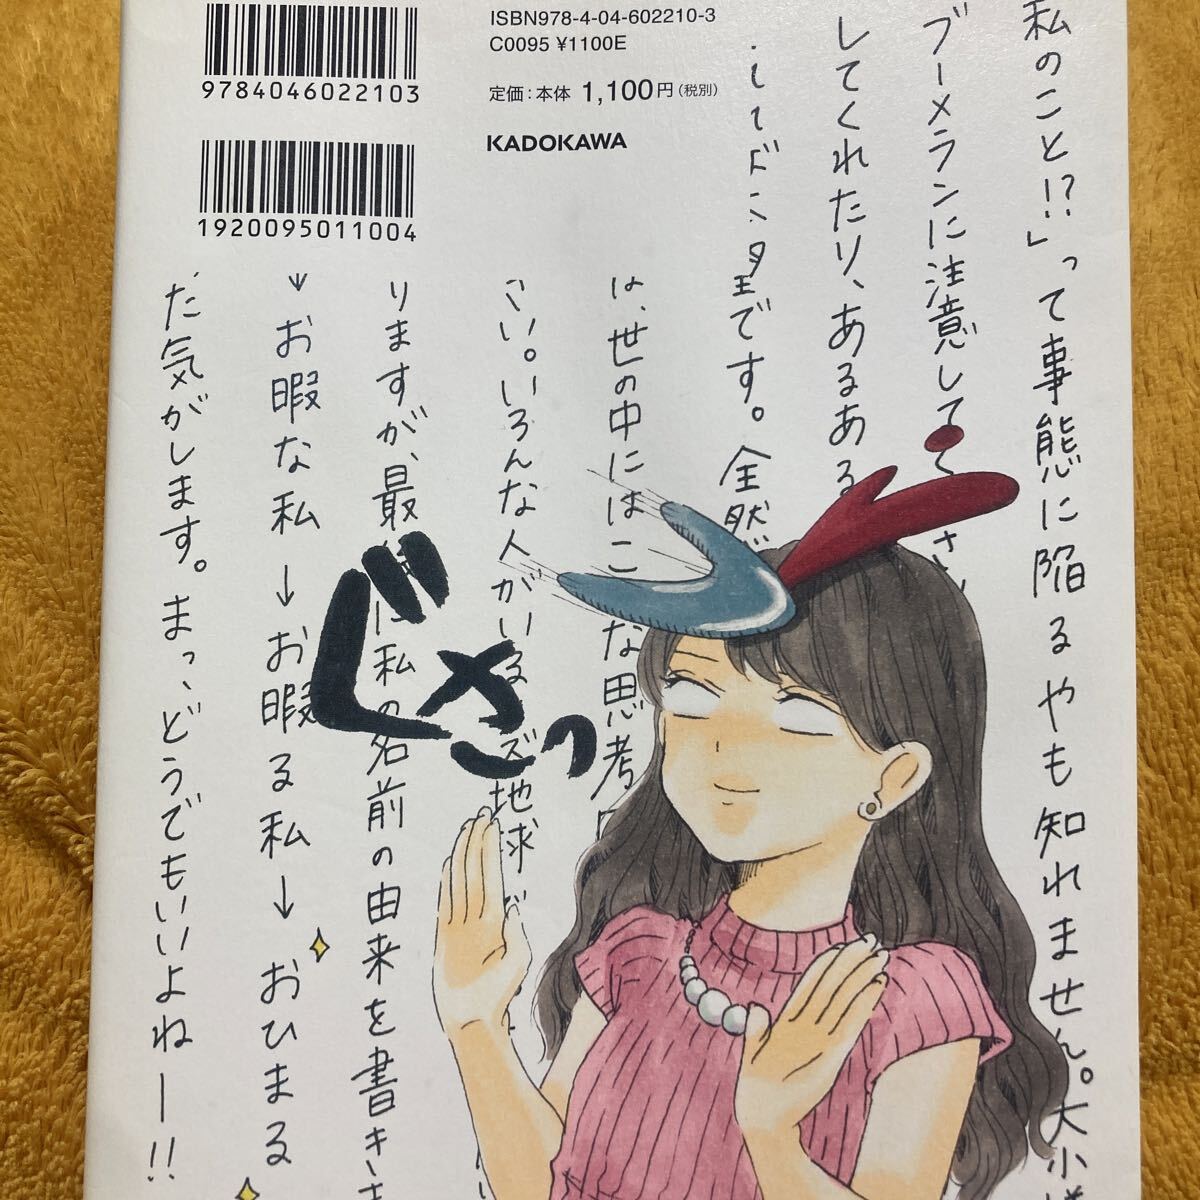 9784046022103
1920095011004
ISBN978-4-04-602210-3
C0095 ¥1100E
定価:本体 1,100円(税別)
KADOKAWA
私のこと!?」って事態に陥るやも知れません。大小
ブーメランに注意してくださ
してくれたり、あるある
です。全然
は、世の中にはこ な思考
さい。いろんな人がいる ズ地球
りますが、最 に私の名前の由来を書き
↓お暇な私→お暇る私→おひまる
た気がします。まっ、どうでもいいよねー!!
ぐさっ